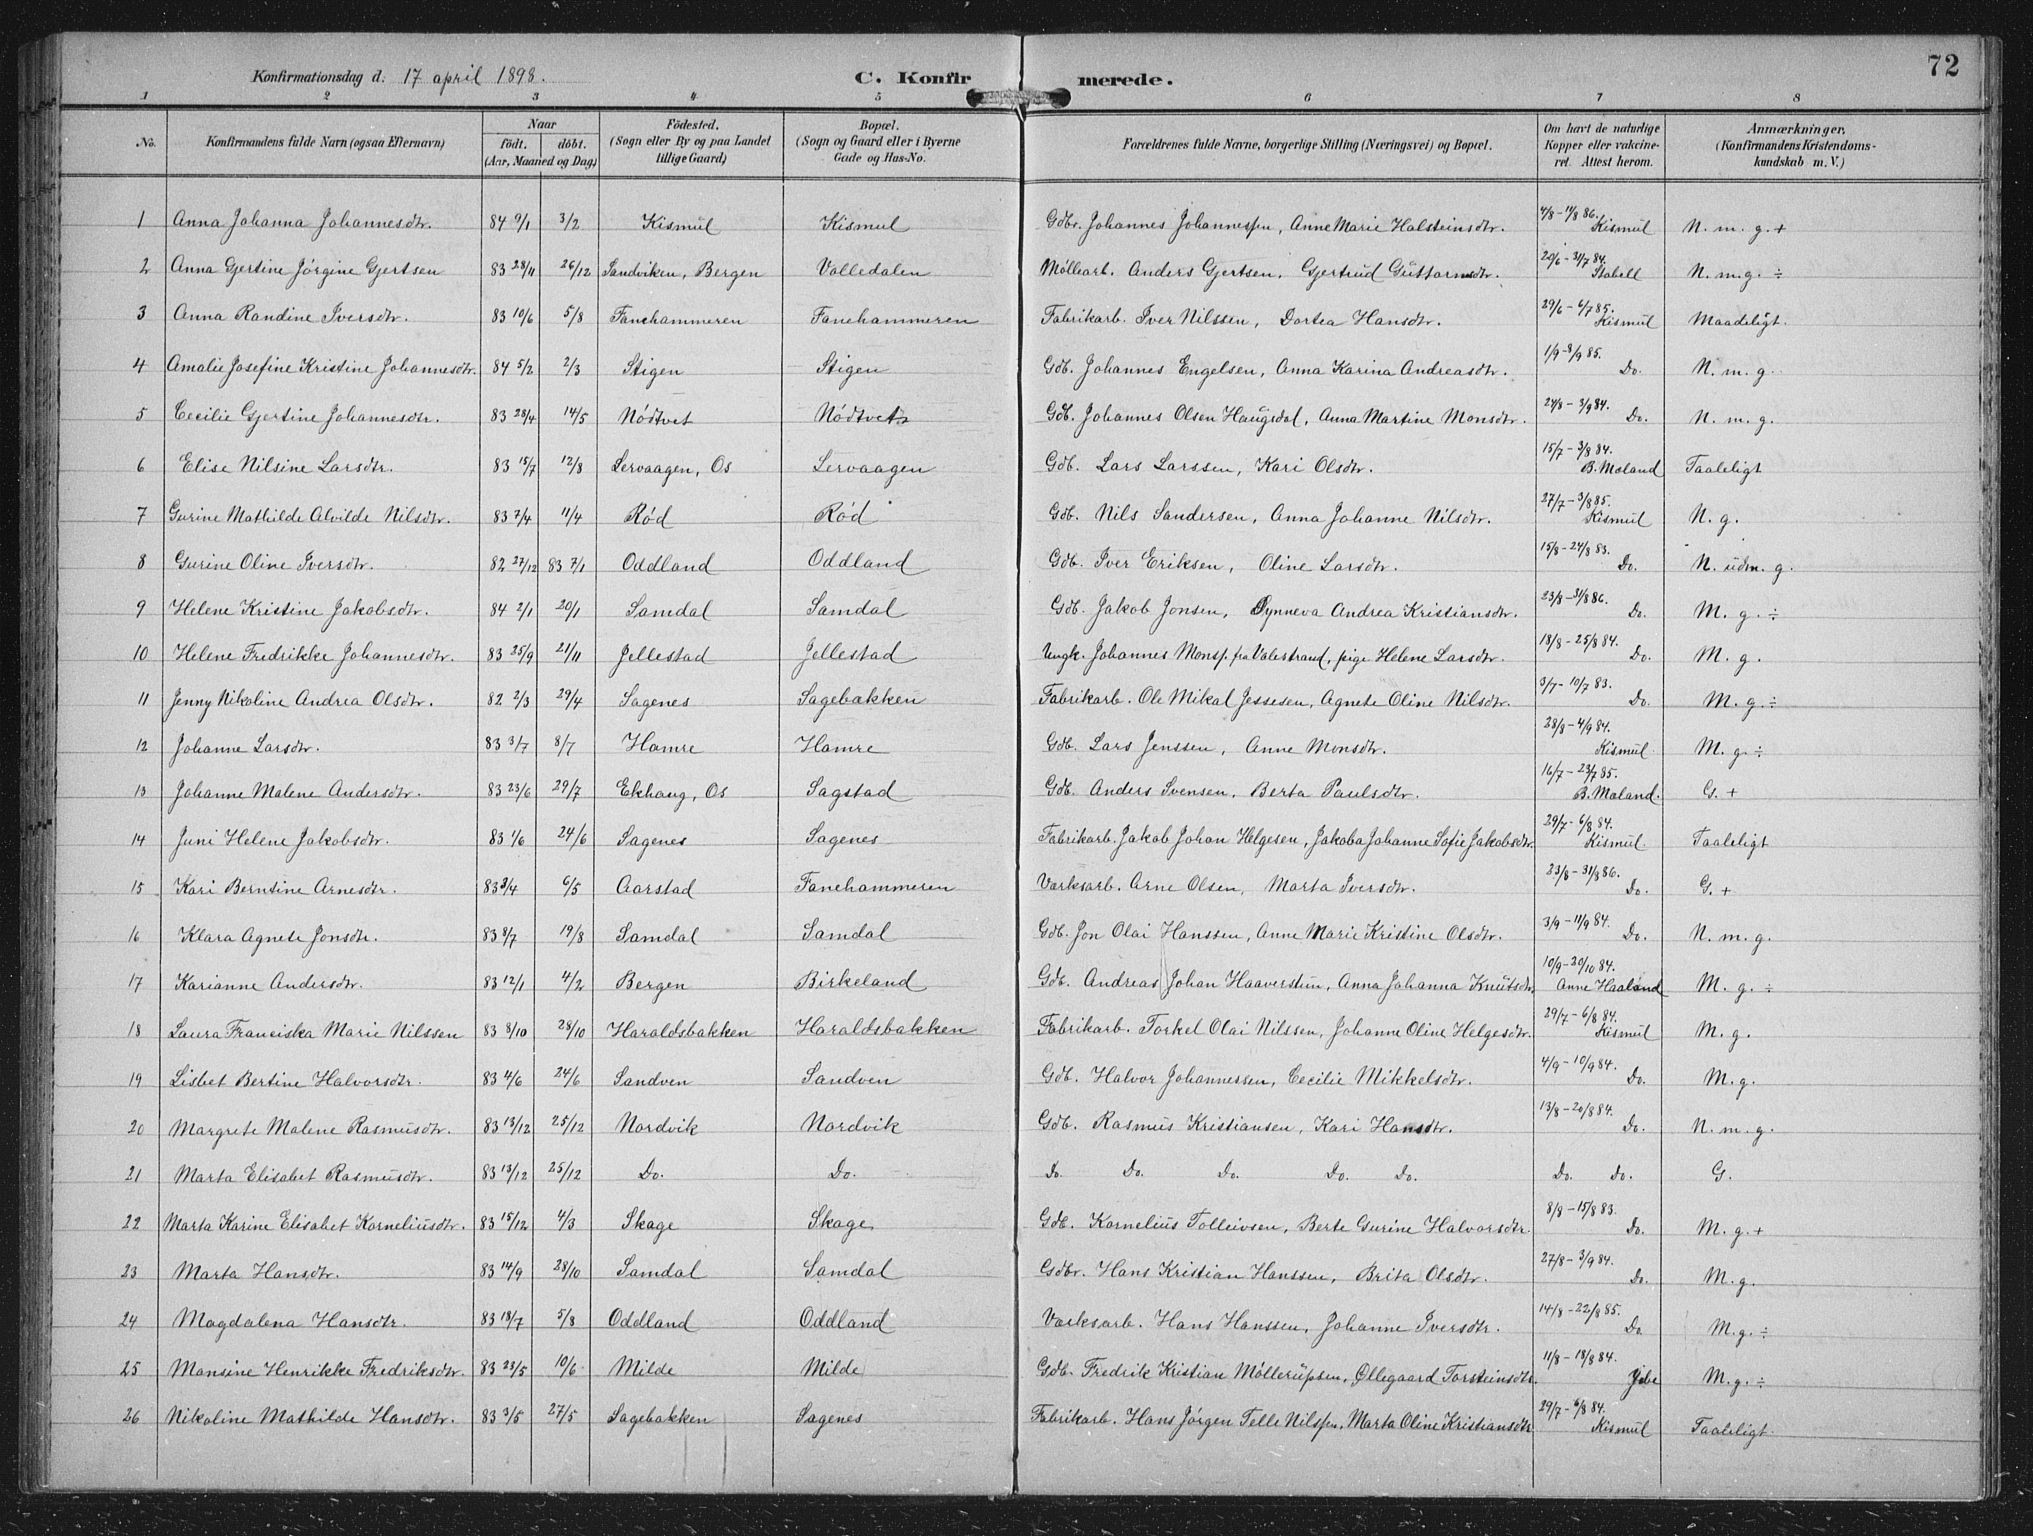 72
Konfirmationsdag d. 17 april 1898. C. Konfir merede.
1 2 3 4 5 6 7 8
No. Konfirmandens fulde Navn (ogsaa Efternavn) Naar født. døbt. (Aar, Maaned og Dag) Fødested. (Sogn eller By og paa Landet tillige Gaard) Bopæl. (Sogn og Gaard eller i Byerne Gade og Hus-No. Forældrenes fulde Navne, borgerlige Stilling (Næringsvei) og Bopæl. Om havt de naturlige Kopper eller vakcineret. Attest herom. Anmærkninger, (Konfirmandens Kristendomskundskab m. V.)
1 Anna Johanna Johannesdtr. 84 9/1 3/2 Kismul Kismul Gdbr. Johannes Johannessen, Anne Marie Halsteinsdtr. 4/8 - 11/8 86. Kismul N. m. g. +
2 Anna Gjertine Jørgine Gjertsen 83 28/11 26/12 Sandviken, Bergen Valledalen Møllearb. Anders Gjertsen, Gjertrud Guttormsdtr. 20/6 - 31/7 84. Stabell N. m. g. ÷
3 Anna Randine Iversdtr. 83 10/6 5/8 Fanehammeren Fanehammeren Fabrikarb. Iver Nilssen, Dortea Hansdtr. 29/6 - 6/7 85. Kismul Maadeligt.
4 Amalie Josefine Kristine Johannesdtr. 84 5/2 2/3 Stigen Stigen Gdb. Johannes Engelsen, Anna Karina Andreasdtr. 1/9 - 8/9 85. Do. N. m. g.
5 Cecilie Gjertine Johannesdtr. 83 28/4 14/5 Nødtvet Nødtvet Gdb. Johannes Olsen Haugsdal, Anna Martine Monsdtr. 24/8 - 3/9 84. Do. N. m. g.
6 Elise Nilsine Larsdtr. 83 15/7 12/8 Lervaagen, Os Lervaagen Gdb. Lars Larssen, Kari Olsdtr. 15/7 - 3/8 84. B. Moland Taaleligt
7 Gurine Mathilde Alvilde Nilsdtr. 83 7/4 11/4 Rød Rød Gdb. Nils Sandersen, Anna Johanne Nilsdtr. 27/7 - 3/8 85. Kismul N. g.
8 Gurine Oline Iversdtr. 82 27/12 83 7/1 Oddland Oddland Gdb. Iver Eriksen, Oline Larsdtr. 15/8 - 24/8 83. Do. N. udm. g.
9 Helene Kristine Jakobsdtr. 84 2/1 20/1 Samdal Samdal Gdb. Jakob Jonsen, Synneva Andrea Kristiansdtr. 23/8 - 31/8 86. Do. M. g. ÷
10 Helene Fredrikke Johannesdtr. 83 25/9 21/11 Jellestad Jellestad Ungk. Johannes Monss. fra Valestrand, pige Helene Larsdtr. 18/8 - 25/8 84. Do. M. g.
11 Jenny Nikoline Andrea Olsdtr. 82 2/3 29/4 Sagenes Sagebakken Fabrikarb. Ole Mikal Jessesen, Agnete Oline Nilsdtr. 3/7 - 10/7 83. Do. M. g. ÷
12 Johanne Larsdtr. 83 3/7 8/7 Hamre Hamre Gdb. Lars Jenssen, Anne Monsdtr. 28/8 - 4/9 84. Kismul. M. g. ÷
13 Johanne Malene Andersdtr. 83 23/6 29/7 Ekhaug, Os Sagstad Gdb. Anders Svensen, Berta Paulsdtr. 16/7 - 23/7 85. B. Moland. G. +
14 Juni Helene Jakobsdtr. 83 1/6 24/6 Sagenes Sagenes Fabrikarb. Jakob Johan Helgesen, Jakoba Johanne Sofie Jakobsdtr. 29/7 - 6/8 84. Kismul. Taaleligt
15 Kari Berntine Arnesdtr. 83 3/4 6/5 Aarstad Fanehammeren Varksarb. Arne Olsen, Marta Iversdtr. 23/8 - 31/8 86. Do. G. +
16 Klara Agnete Jonsdtr. 83 8/7 19/8 Samdal Samdal Gdb. Jon Olai Hanssen, Anne Marie Kristine Olsdtr. 3/9 - 11/9 84. Do. N. m. g.
17 Karianne Andersdtr. 83 12/1 4/2 Bergen Birkeland Gdb. Andreas Johan Haaverstun, Anna Johanna Knutsdtr. 10/9 - 20/10 84. Anne Haaland M. g. ÷
18 Laura Franciska Marie Nilssen 83 8/10 28/10 Haraldsbakken Haraldsbakken Fabrikarb. Torkel Olai Nilssen, Johanne Oline Helgesdtr. 29/7 - 6/8 84. Kismul M. g.
19 Lisbet Bertine Halvorsdtr. 83 4/6 24/6 Sandven Sandven Gdb. Halvor Johannessen, Cecilie Mikkelsdtr. 4/9 - 10/9 84. Do. M. g.
20 Margrete Malene Rasmusdtr. 83 13/12 25/12 Nordvik Nordvik Gdb. Rasmus Kristiansen, Kari Hansdtr. 13/8 - 20/8 84. Do. N. m. g.
21 Marta Elisabet Rasmusdtr. 83 13/12 25/12 Do. Do. Do. Do. Do. Do. Do. Do. Do. G.
22 Marta Karine Elisabet Korneliusdtr. 83 15/12 4/3 Skage Skage Gdb. Kornelius Tolleivsen, Berte Gurine Halvorsdtr. 8/8 - 15/8 83. Do. M. g. +
23 Marta Hansdtr. 83 14/9 28/10 Samdal Samdal Gdbr. Hans Kristian Hanssen, Brita Olsdtr. 27/8 - 3/9 84. Do. M. g.
24 Magdalena Hansdtr. 83 18/7 5/8 Oddland Oddland Varksarb. Hans Hanssen, Johanne Iversdtr. 14/8 - 22/8 85. Do. M. g. ÷
25 Monsine Henrikke Fredriksdtr. 83 23/5 10/6 Milde Milde Gdb. Fredrik Kristian Møllerupsen, Øllegaard Torsteinsdtr. 11/8 - 18/8 84. M. g. ÷
26 Nikoline Mathilde Hansdtr. 83 3/5 27/5 Sagebakken Sagenes Fabrikarb. Hans Jørgen Telle Nilssen, Marta Oline Kristiansdtr. 29/7 - 6/8 84. Kismul Taaleligt.